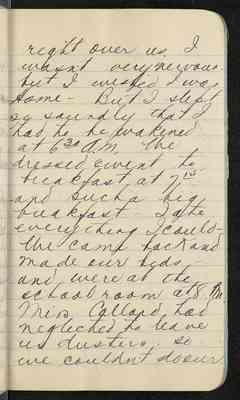 right over us. I
wasn't very nervous
but I wished I was
home - But I slept
so soundly that I
had to be wakened
at 6 30 A.M. We
dressed & went to
breakfast at 7 15
and such a big
breakfast. I ate
everything I could -
We came back and
made our beds -
and were at the
school room at 8 A.M.
Miss Collard had
neglected to leave
us dusters, so
we couldn't do our